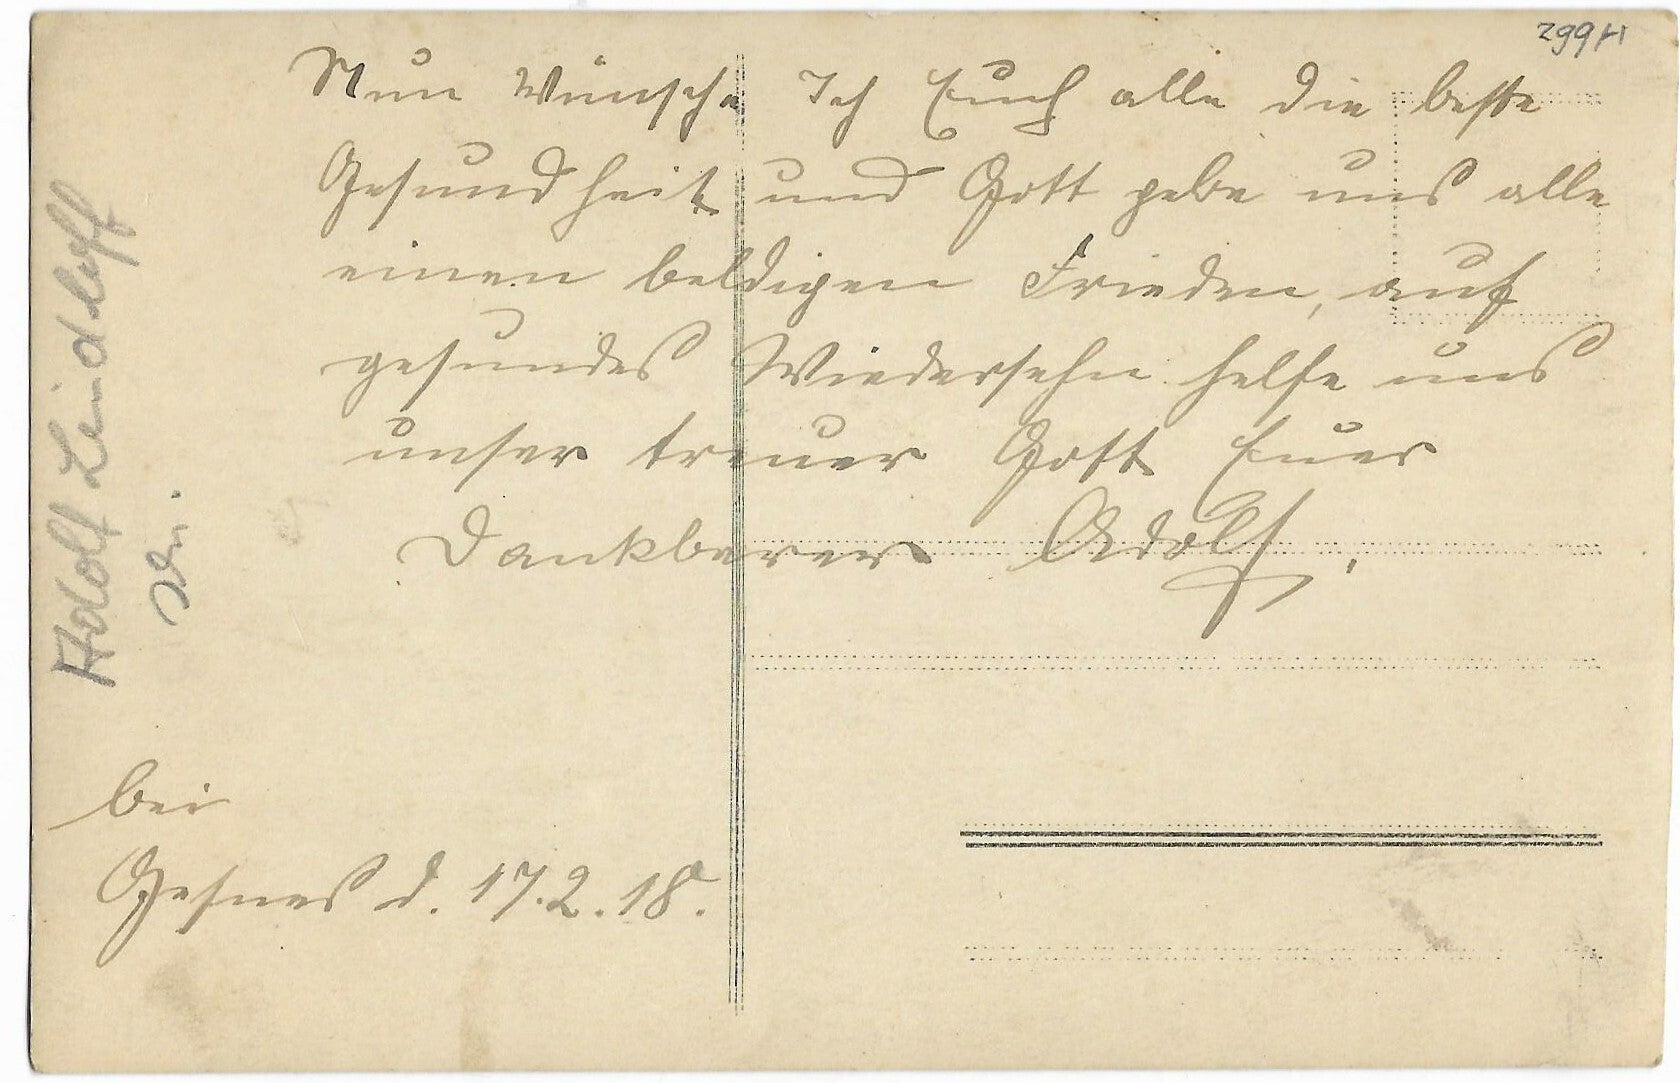 Nun Wünsche Ich Euch alle die beste
Gesundheit und Gott gebe uns alle
einen beldigen Frieden, auf
gesundes Wiedersehn helfe uns
unser treuer Gott Euer
Dankbarer Adolf.
bei
Gesnes d. 17.2.18.
Adolf Leindloff